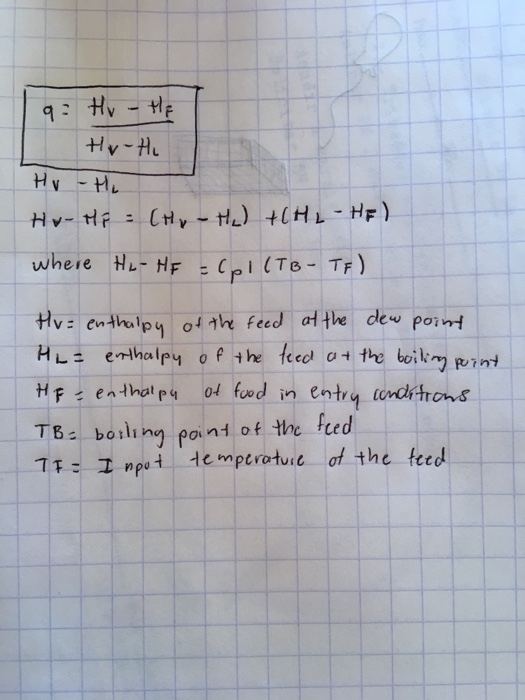 q = Hv - HF
Hv - HL
Hv - HL
Hv - HF = (Hv - HL) + (HL - HF)
where HL - HF = Cpl (TB - TF)
Hv = enthalpy of the feed at the dew point
HL = enthalpy of the feed at the boiling point
HF = enthalpy of food in entry conditions
TB = boiling point of the feed
TF = Input temperature of the feed